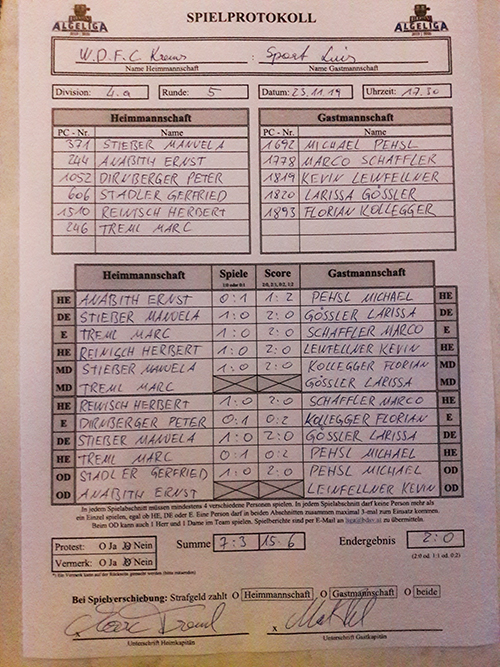 ALGELIGA SPIELPROTOKOLL ALGELIGA
W.D.F.C. Krems : Sport Luis
Name Heimmannschaft Name Gastmannschaft
Division: 4.a Runde: 5 Datum: 23.11.19 Uhrzeit: 17.30
Heimmannschaft Gastmannschaft
PC - Nr. Name PC - Nr. Name
371 STIEßER MANUELA 1692 MICHAEL PEHSL
244 ANAßITH ERNST 1778 MARCO SCHAFFLER
1052 DIRNBERGER PETER 1819 KEVIN LEINFELLNER
606 STADLER GERFRIED 1820 LARISSA GÖSSLER
1510 REINISCH HERBERT 1893 FLORIAN KOLLEGGER
246 TREML MARC
Heimmannschaft Spiele Score Gastmannschaft
1:0 oder 0:1 2:0, 2:1, 0:2, 1:2
HE ANAßITH ERNST 0:1 1:2 PEHSL MICHAEL HE
DE STIEßER MANUELA 1:0 2:0 GÖSSLER LARISSA DE
E TREML MARC 1:0 2:0 SCHAFFLER MARCO E
HE REINISCH HERBERT 1:0 2:0 LEINFELLNER KEVIN HE
MD STIEßER MANUELA 1:0 2:0 KOLLEGGER FLORIAN MD
MD TREML MARC GÖSSLER LARISSA MD
HE REINISCH HERBERT 1:0 2:0 SCHAFFLER MARCO HE
E DIRNBERGER PETER 0:1 0:2 KOLLEGGER FLORIAN E
DE STIEßER MANUELA 1:0 2:0 GÖSSLER LARISSA DE
HE TREML MARC 0:1 0:2 PEHSL MICHAEL HE
OD STADLER GERFRIED 1:0 2:0 PEHSL MICHAEL OD
OD ANAßITH ERNST LEINFELLNER KEVIN OD
In jedem Spielabschnitt müssen mindestens 4 verschiedene Personen spielen. In jedem Spielabschnitt darf keine Person mehr als
ein Einzel spielen, egal ob HE, DE oder E. Eine Person darf in beiden Abschnitten zusammen maximal 3-mal zum Einsatz kommen.
Beim OD kann auch 1 Herr und 1 Dame im Team spielen. Spielberichte sind per E-Mail an zu übermitteln.
Protest: O Ja O Nein Summe 7:3 15:6 Endergebnis 2:0
Vermerk: O Ja O Nein (2:0 od. 1:1 od. 0:2)
Bei Spielverschiebung: Strafgeld zahlt O Heimmannschaft O Gastmannschaft O beide
x x
Unterschrift Heimkapitän Unterschrift Gastkapitän